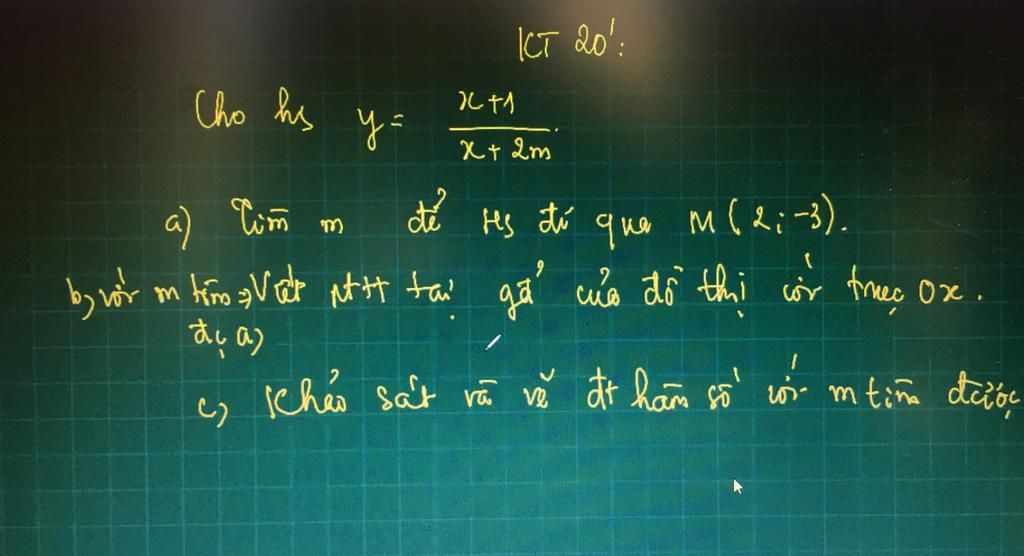 KT 20':
Cho hs y = \frac{x+1}{x+2m}.
a) Tìm m để Hs đi qua M(2;-3).
b, với m tìm đc a) Viết PTTT tại gđ của đồ thị với trục Ox.
c, Khảo sát và vẽ đt hàm số với m tìm được